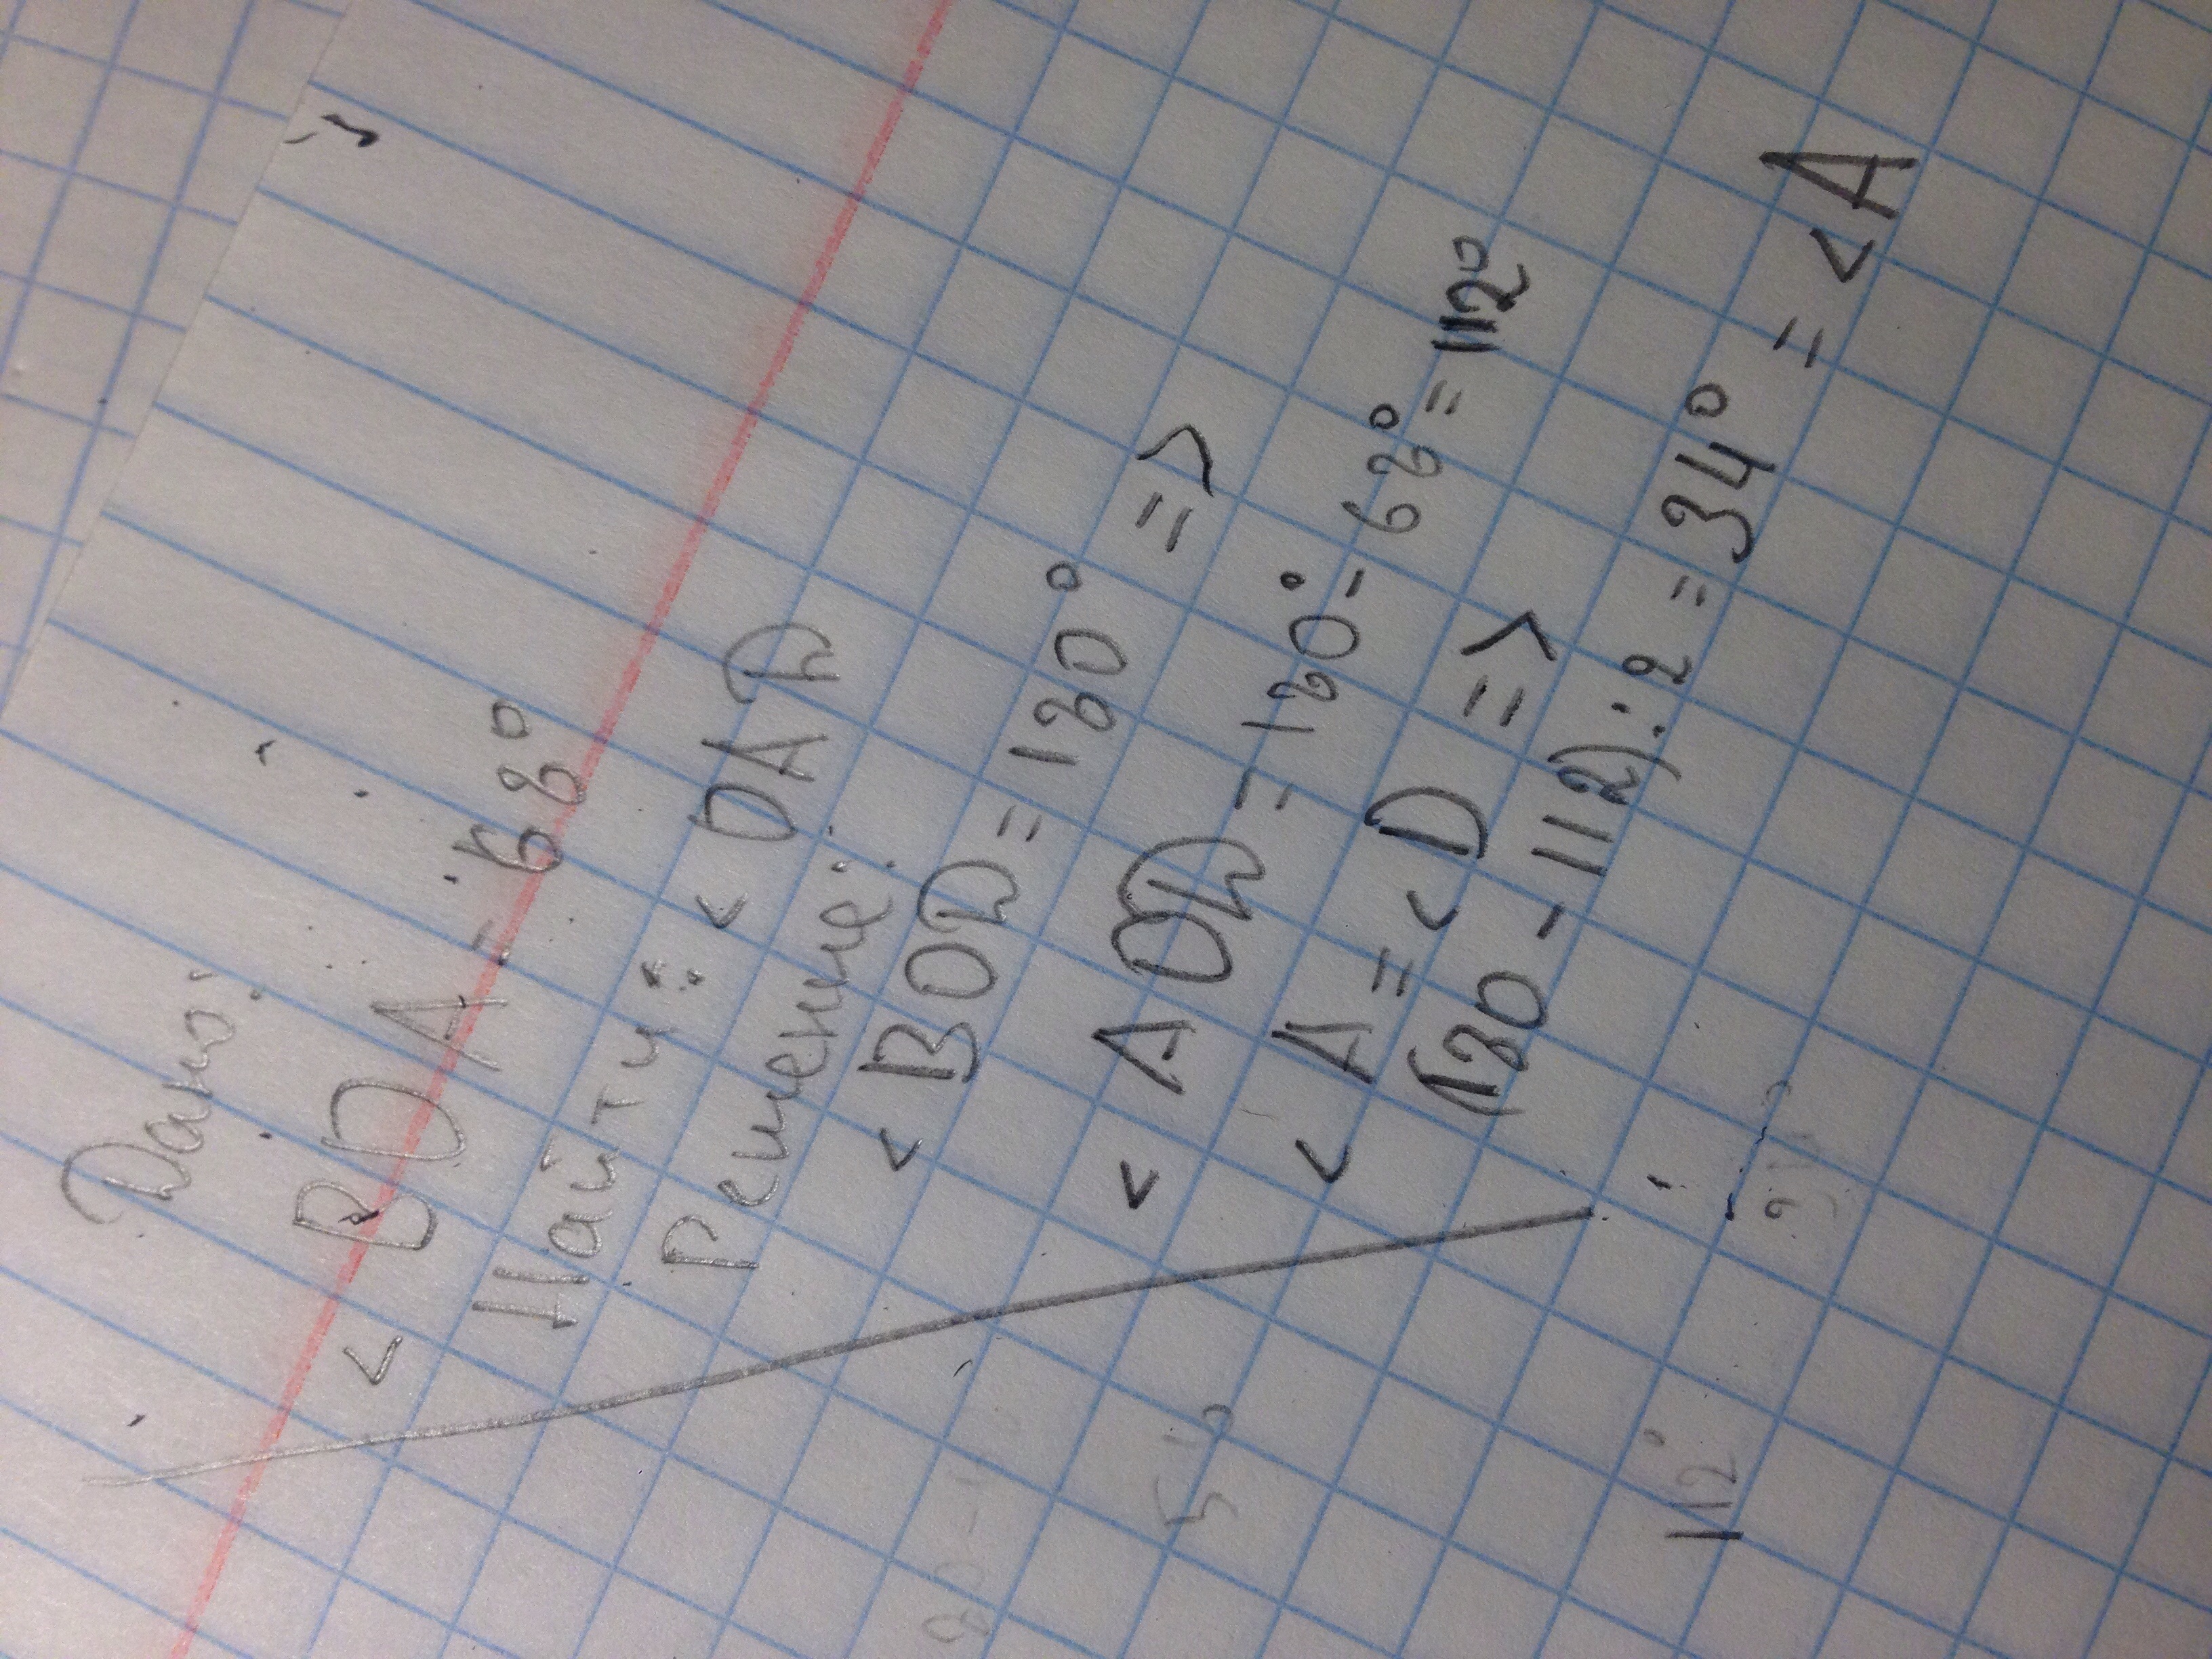 Дано:
< BOA = 68°
Найти: < OAD
Решение:
< BOD = 180° =>
< AOD = 180° - 68° = 112°
< A = < D =>
(180 - 112) : 2 = 34° = < A
112°